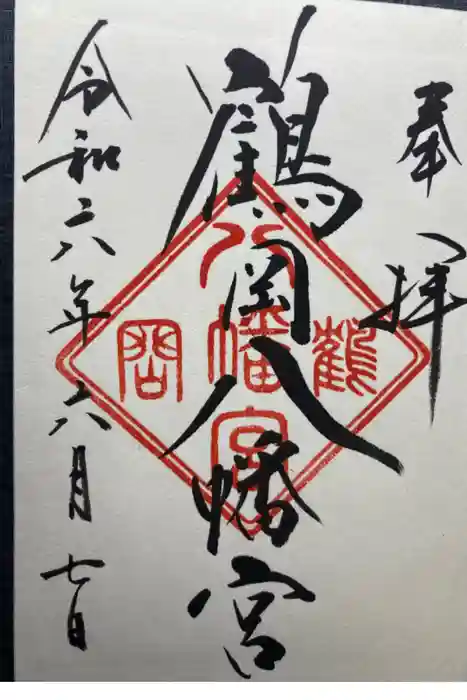 奉拝
鶴岡八幡宮
令和六年六月七日
鶴岡
八幡宮